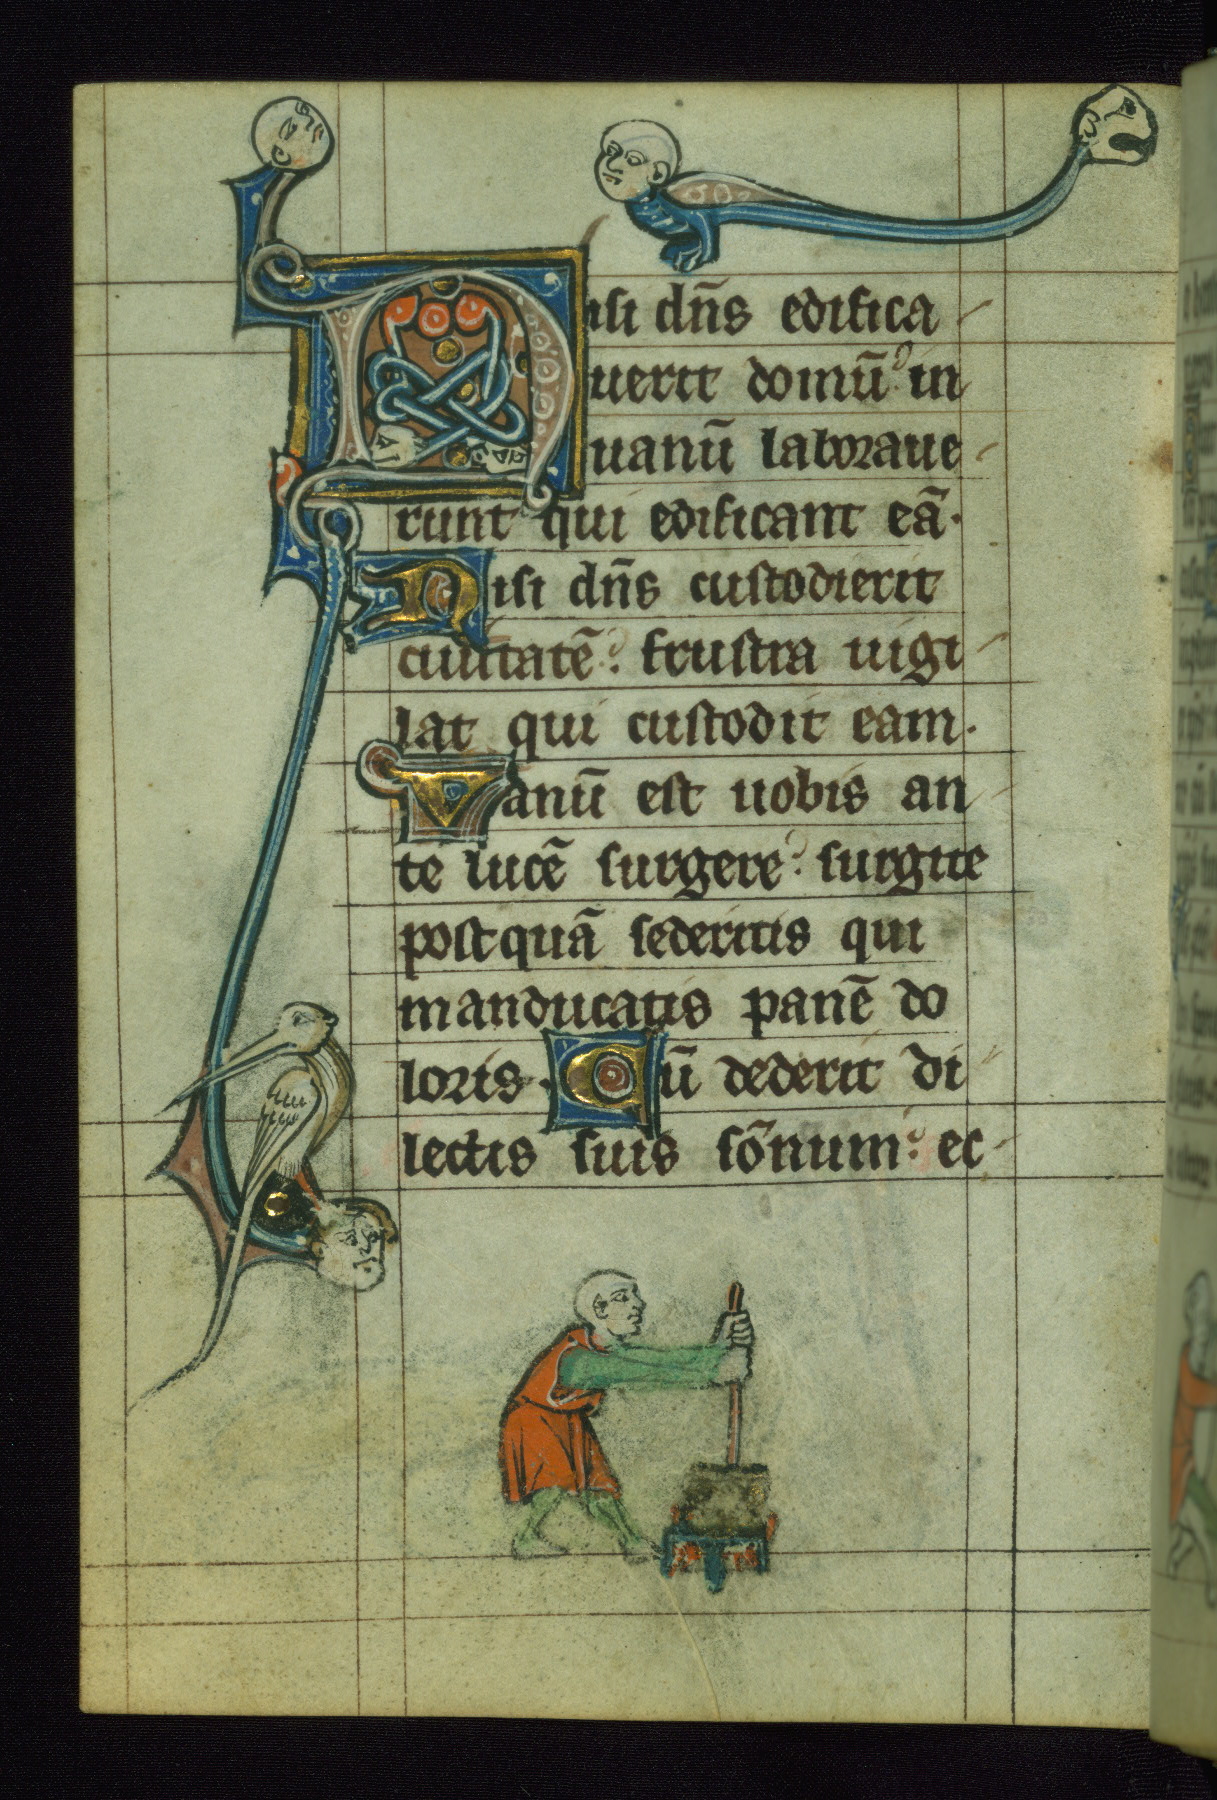 Nisi dn̄s edifica
uerit domū in
uanū laboraue
runt qui edificant eā.
Nisi dn̄s custodierit
ciuitatē: frustra uigi
lat qui custodit eam.
Vanū est uobis an
te lucē surgere: surgite
postquā sederitis qui
manducatis panē do
loris. Cū dederit di
lectis suis sōnum: ec